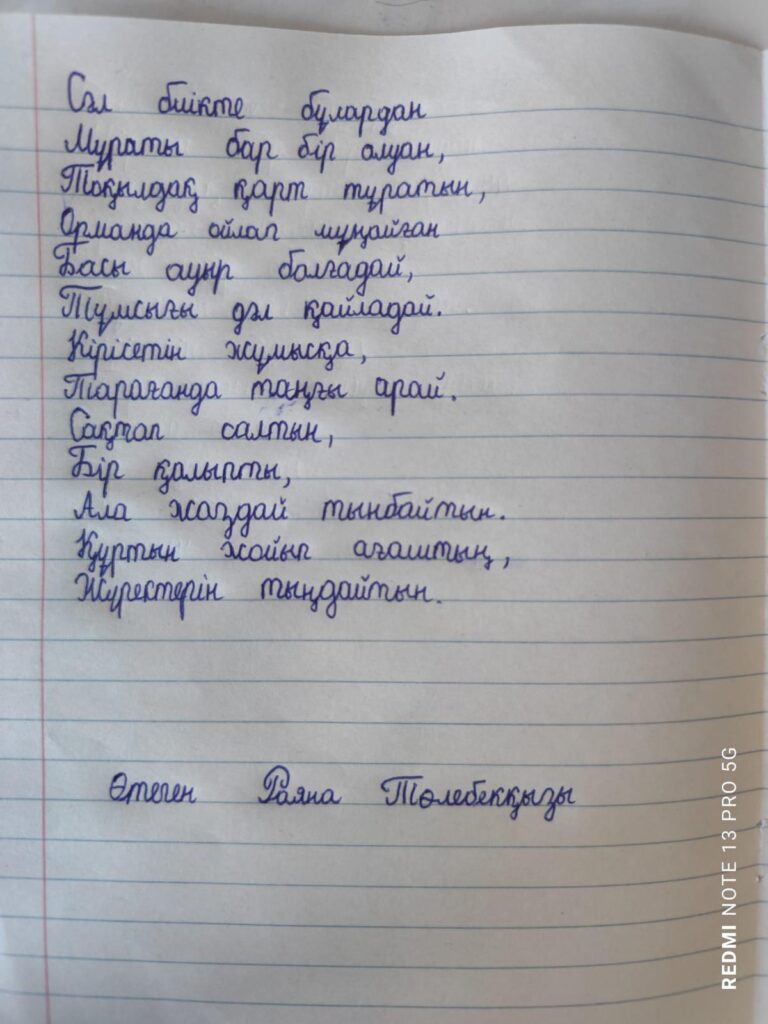 Сәл биікте бұлардан
Мұраты бар бір алуан,
Тоқылдақ қарт тұратын,
Орманда ойлап мұңайған
Басы ауыр балғадай,
Тұмсығы дәл қайладай.
Кірісетін жұмысқа,
Тарағанда таңғы арай.
Сақтап салтын,
Бір қалыпты,
Ала жаздай тынбайтын.
Құртын жойып ағаштың,
Жүректерін тыңдайтын.
Өтеген Раяна Төлебекқызы
REDMI NOTE 13 PRO 5G